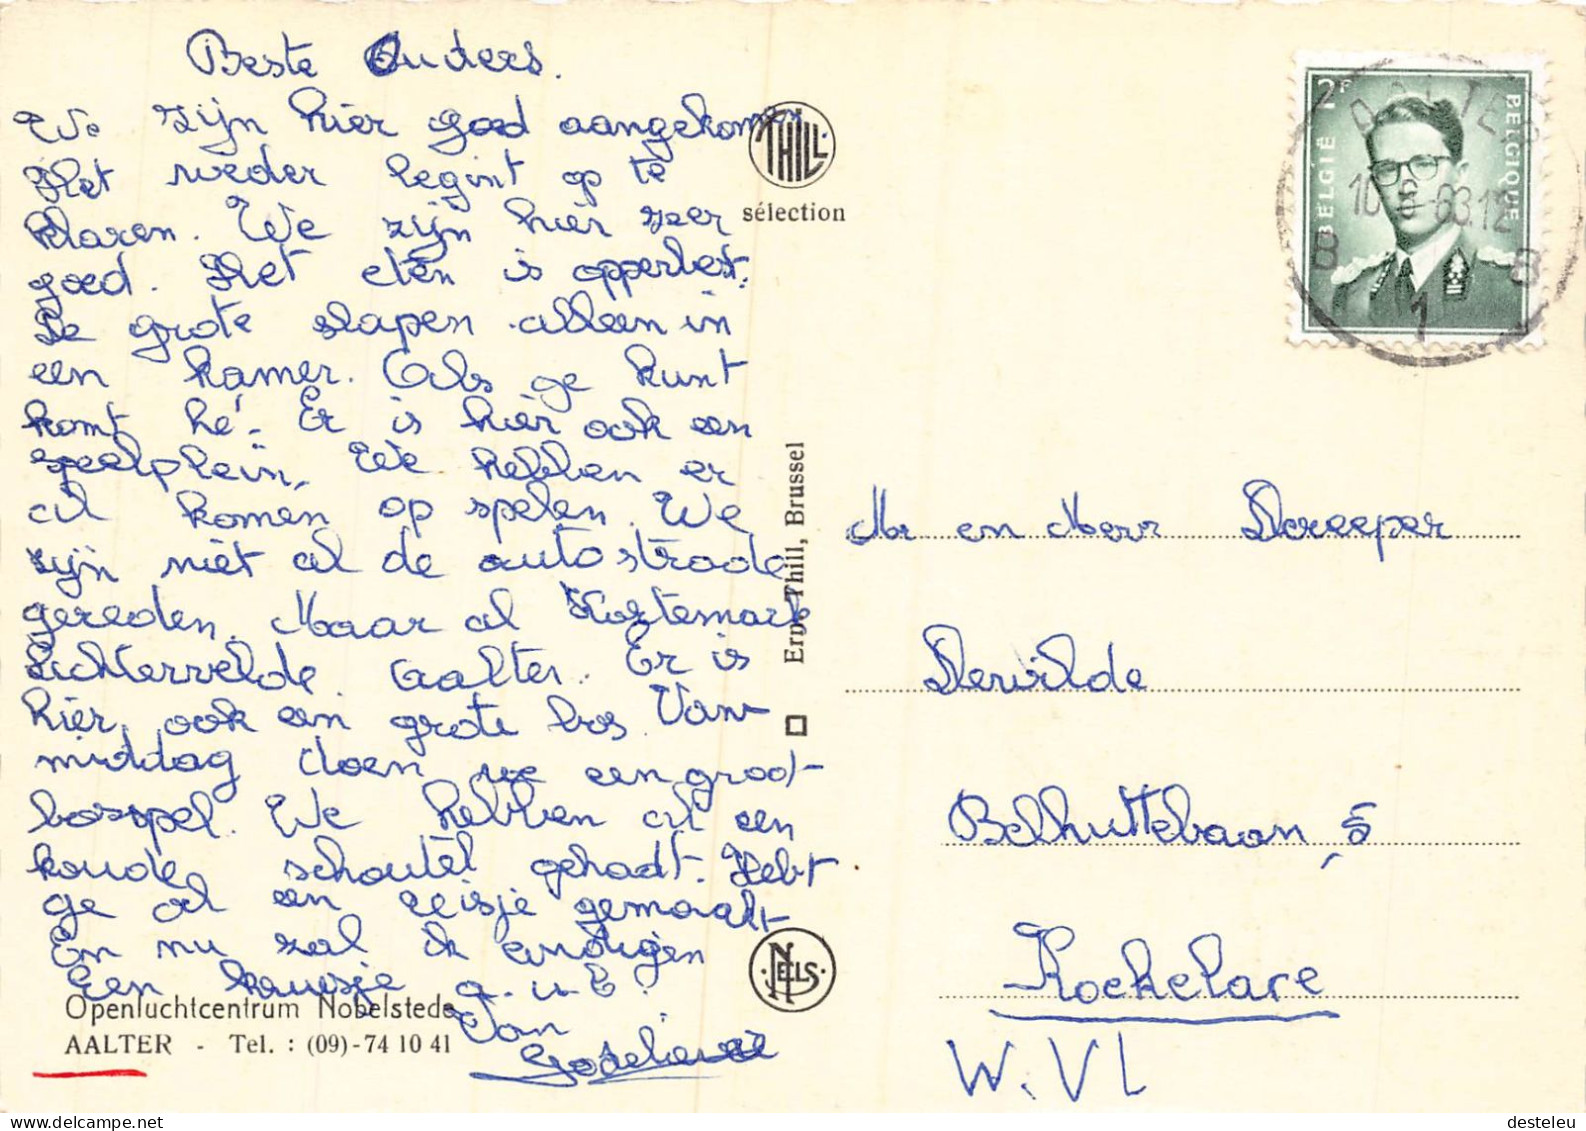 Beste Ouders.
We zijn hier goed aangekomen
Het weder begint op te
klaren. We zijn hier zeer
goed. Het eten is opperbest.
De grote slapen alleen in
een kamer. Als ge kunt
komt hé. Er is hier ook een
speelplein. We hebben er
al komen op spelen. We
zijn niet al de autostrade
gereden. Maar al Kortemark
Lichtervelde Aalter. Er is
hier ook een grote bos. Van-
middag doen we een groot
bosspel. We hebben al een
koude schoutel gehadt. Hebt
ge al een reisje gemaakt
En nu zal ik eindigen
Een kuisje a.u.b.
Van
Godelieve
Openluchtcentrum Nobelstede
AALTER - Tel. : (09)-74 10 41
THILL
sélection
Ern. Thill, Brussel
NELS
2F
BELGIË
BELGIQUE
AALTER
B 1 B
Mr en Mevr Dereeper
Derwilde
Belhuttebaan, 5
Kockelare
W.VL
desteleu